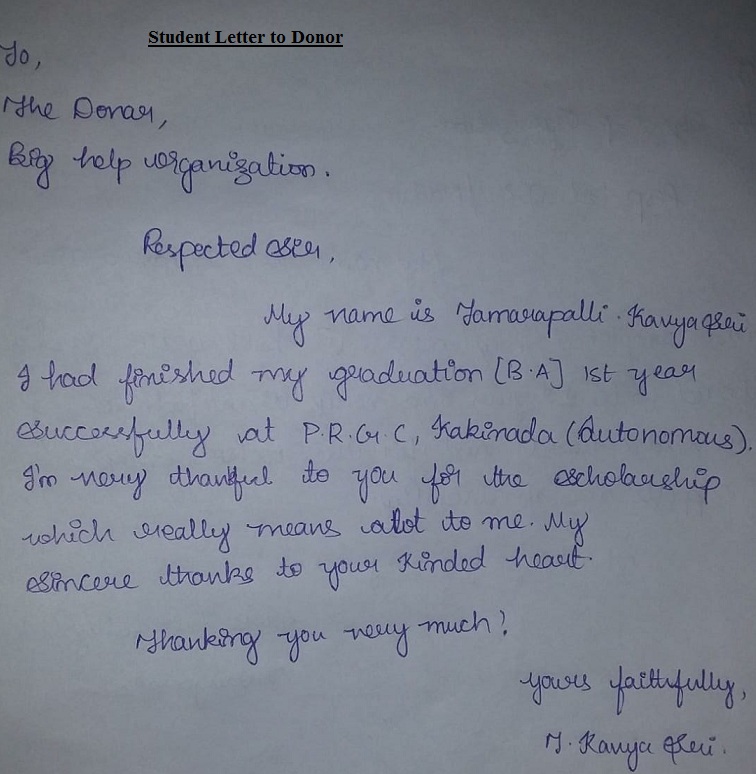 Student Letter to Donor
To,
The Donar,
Big help organization.
Respected sir,
My name is Tamarapalli. Kavya Sri
I had finished my graduation [B.A] 1st year
successfully at P.R.G.C, Kakinada (Autonomous).
I'm very thankful to you for the scholarship
which really means alot to me. My
sincere thanks to your kinded heart.
Thanking you very much!
yours faithfully,
T. Kavya Sri.